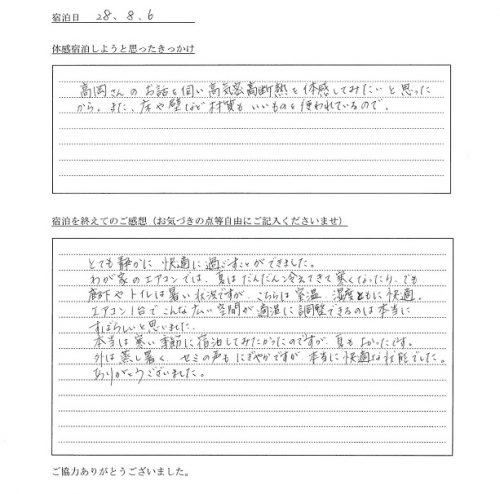 宿泊日 28.8.6
体感宿泊しようと思ったきっかけ
高岡さんのお話を伺い高気密高断熱を体感してみたいと思った
から。また、床や壁など材質もいいものを使われているので。
宿泊を終えてのご感想（お気づきの点等自由にご記入くださいませ）
とても静かに快適に過ごすことができました。
わが家のエアコンでは、夏はだんだん冷えてきて寒くなったり、でも
廊下やトイレは暑い状況ですが、こちらは室温、湿度ともに快適。
エアコン1台でこんな広い空間が適温に調整できるのは本当に
すばらしいと思いました。
本当は寒い季節に宿泊してみたかったのですが、夏もよかったです。
外は蒸し暑く、セミの声もにぎやかですが本当に快適な性能でした。
ありがとうございました。
ご協力ありがとうございました。